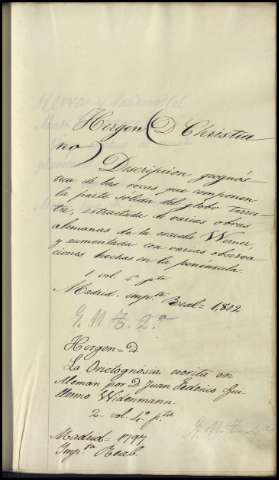 Hergen (D. Christia
no)
Descripcion geognós
tica de las rocas que componen
la parte solida del globo terres
tre, extractada de varias obras
alemanas de la escuela Werner,
y aumentada con varias observa
ciones hechas en la peninsula.
1 vol.
Madrid. Impta Real. 1802
G. N. H. 2.º
Hergen = d.
La Orictognosia escrita en
Aleman por d. Juan Federico Gui
llermo Widenmann.
2. vol. 4.º pta
Madrid = 1797
Impta Real.